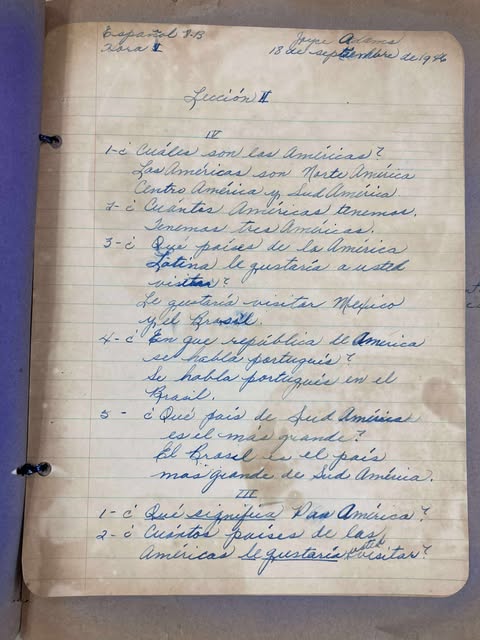 Español 7-B Joyce Adams
Hora I 18 de septiembre de 1946
Lección II
IV
1-¿ Cuáles son las Américas?
Las Américas son Norte América
Centro América y Sud América.
2-¿ Cuántas Américas tenemos.
Tenemos tres Américas.
3-¿ Qué países de la América
Latina le gustaría a usted
visitar?
Le gustaría visitar Mexico
y el Brasil.
4-¿ En que república de America
se habla portugués?
Se habla portugués en el
Brasil.
5-¿ Qué país de Sud América
es el más grande?
El Brasil es el país
más grande de Sud América.
III
1-¿ Qué significa Pan América?
2-¿ Cuántos países de las
Américas le gustaría usted visitar?